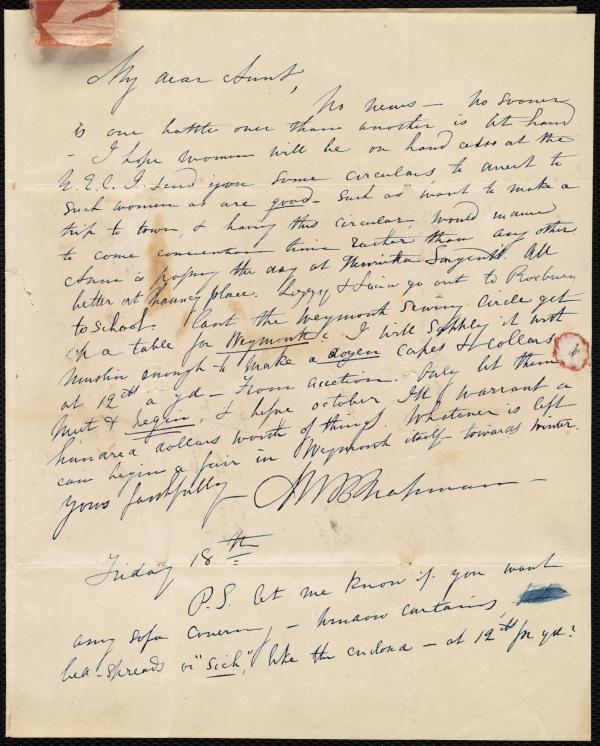 My dear Aunt,
No news — No sooner
is one battle over than another is at hand
— I hope women will be on hand also at the
N.E.C. I send you some circulars to direct to
such women as are good — Such as want to make a
trip to town, & having this circular, would manage
to come convention time rather than any other
Anne is passing the day at Henrietta Sargent's. All
better at Chauncy place. Lizzy & Lucia go out to Roxbury
to School. Can't the Weymouth Sewing Circle get
up a table for Weymouth? I will supply it with
muslin enough to make a dozen capes & collars
at 12 cts a yd — From auction. Only let them
meet & begin, & before October I'll warrant a
hundred dollars worth of things. Whatever is left
can begin a fair in Weymouth itself towards winter.
Yours faithfully — M W Chapman —
Friday 18th
P.S. let me know if you want
any sofa covering — window curtains,
bed-spreads or "Sich", like the enclosed — at 12 cts per yd?